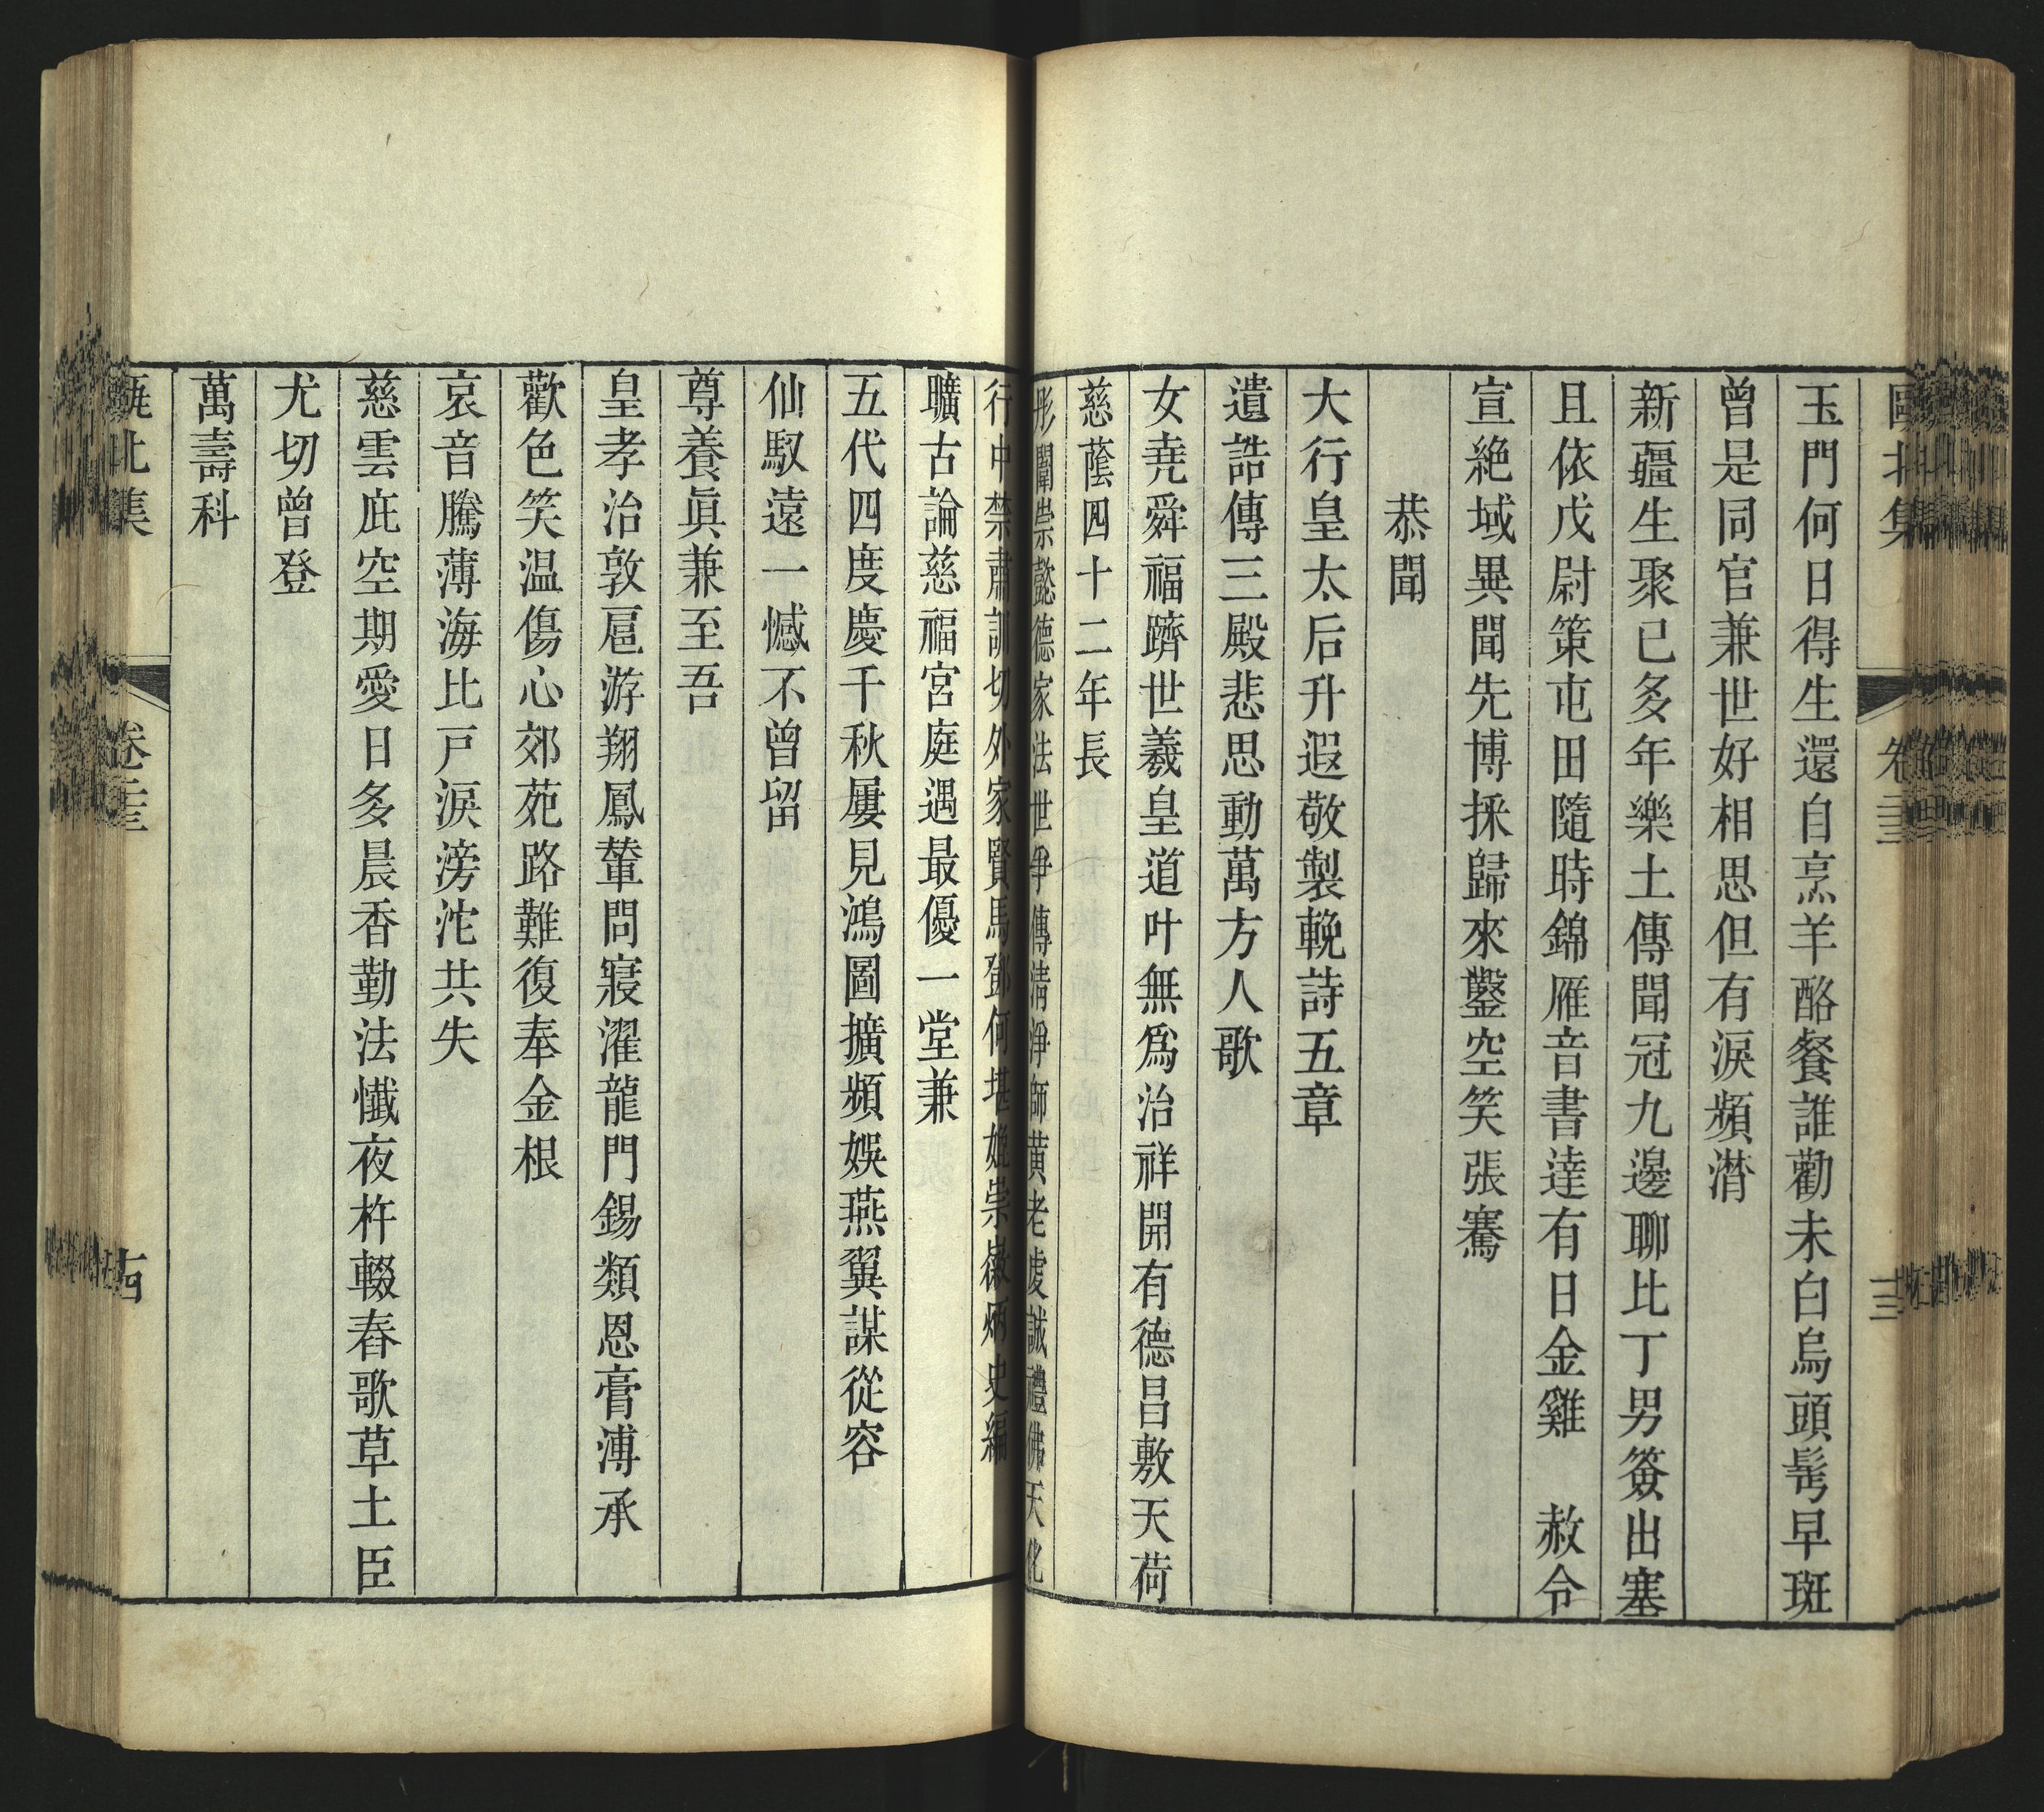 玉門何日得生還自烹羊酪餐誰勸未白烏頭髩早斑
曾是同官兼世好相思但有淚頻潸
新疆生聚已多年樂土傳聞冠九邊聊比丁男簽出塞
且依戊尉策屯田隨時錦雁音書達有日金雞　赦令
宣絶域異聞先博採歸來鑿空笑張騫
恭聞
大行皇太后升遐敬製輓詩五章
遺誥傳三殿悲思動萬方人歌
女堯舜福躋世羲皇道叶無爲治祥開有德昌敷天荷
慈蔭四十二年長
彤闈崇懿德家法世爭傳清淨師黃老虔誠禮佛天化
行中禁肅訓切外家賢馬鄧何堪娩崇徽炳史編
曠古論慈福宮庭遇最優一堂兼
五代四度慶千秋屢見鴻圖擴頻娛燕翼謀從容
仙馭遠一憾不曾留
尊養眞兼至吾
皇孝治敦扈游翔鳳輦問寢濯龍門錫類恩膏溥承
歡色笑温傷心郊苑路難復奉金根
哀音騰薄海比戸淚滂沱共失
慈雲庇空期愛日多晨香勤法懺夜杵輟舂歌草土臣
尤切曾登
萬壽科